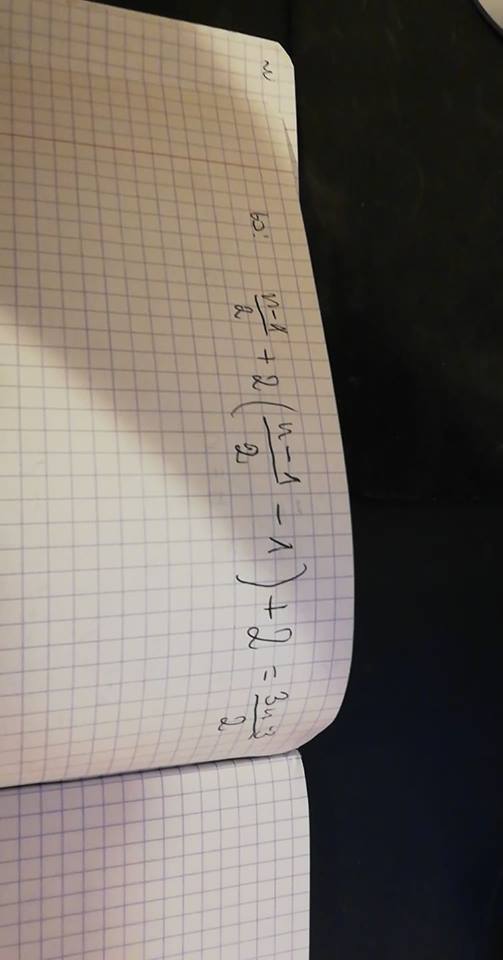 bo: n-1/2 + 2(n-1/2 - 1) + 2 = 3n-3/2